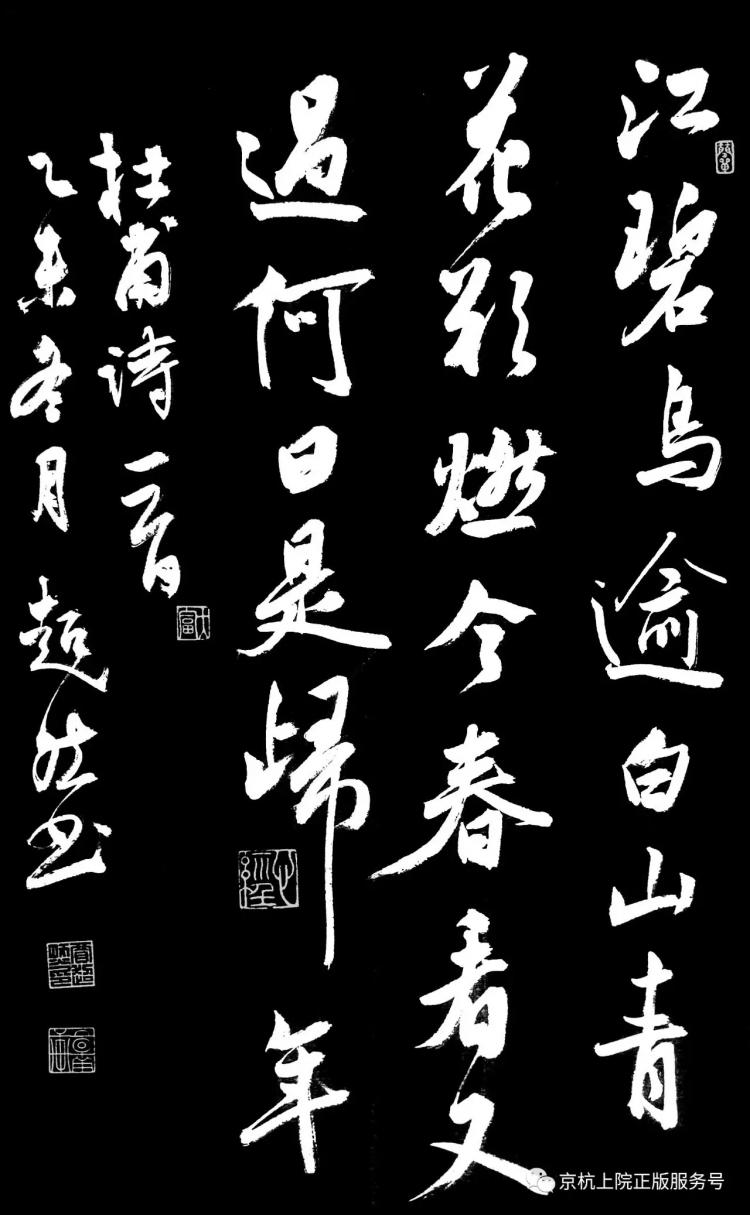 江碧鸟逾白山青
花欲燃今春看又
過何日是歸年
杜甫诗一首
乙未冬月超然书
京杭上院正版服务号